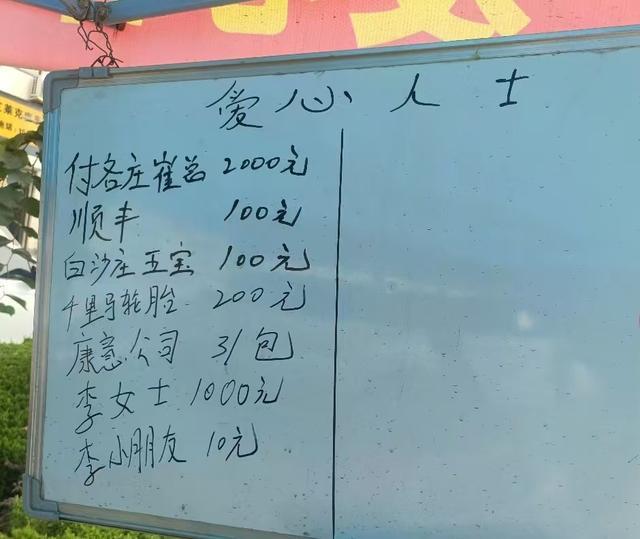 爱心人士
付各庄崔总 2000元
顺丰 100元
白沙庄玉宝 100元
千里马轮胎 200元
康意公司 31包
李女士 1000元
李小朋友 10元